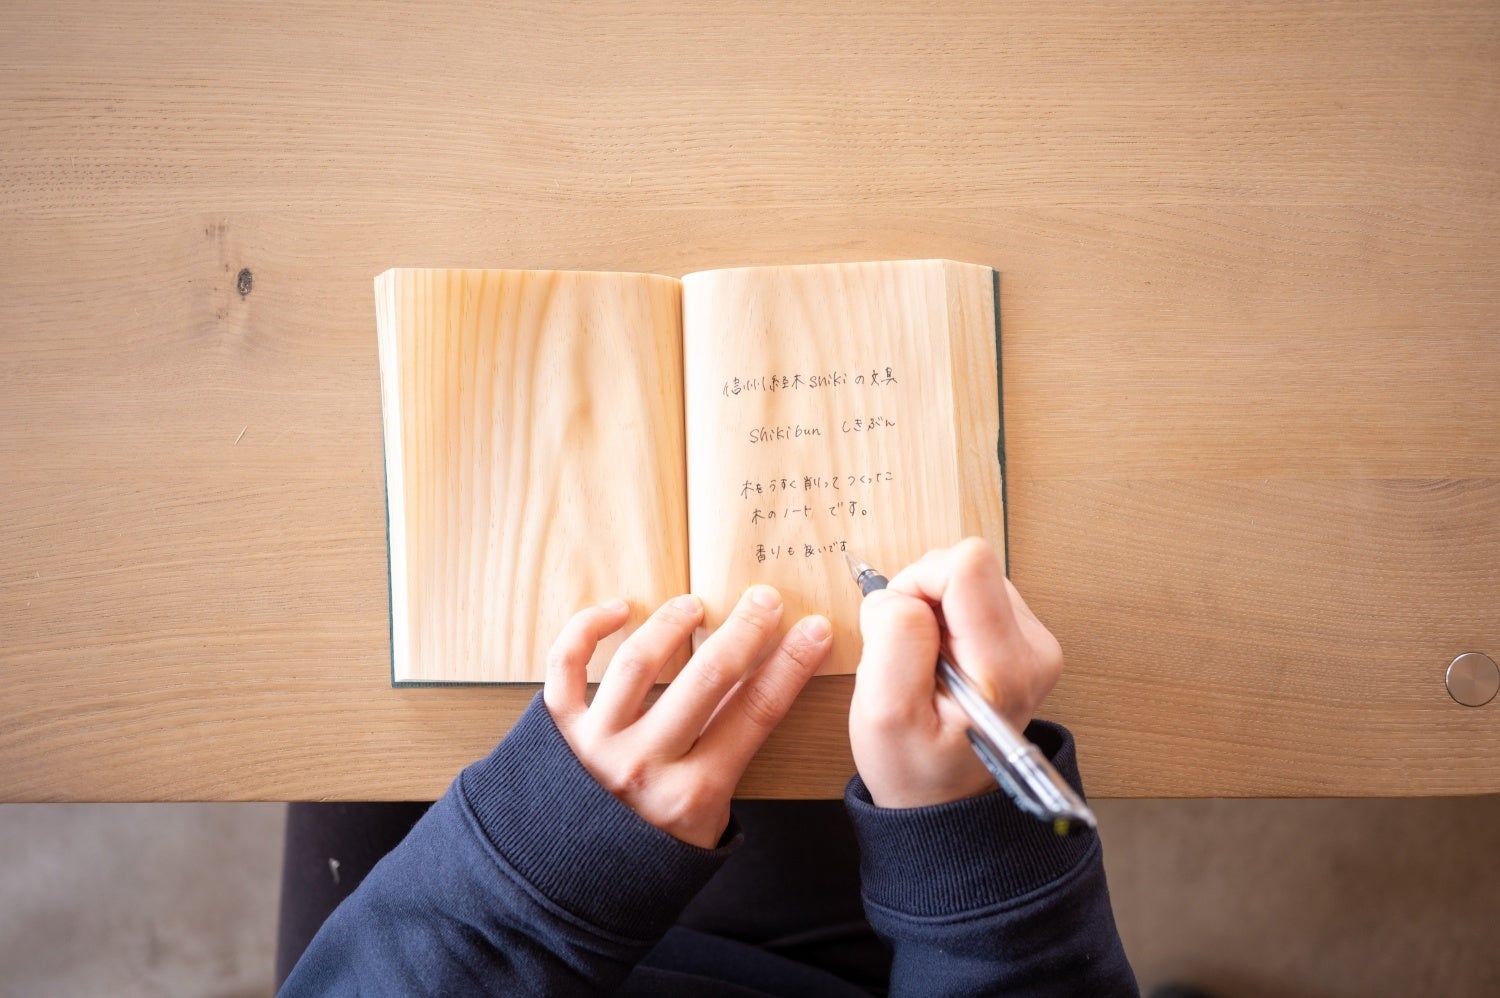 信州経木shikiの文具
shikibun しきぶん
木をうすく削ってつくった
木のノートです。
香りも良いです